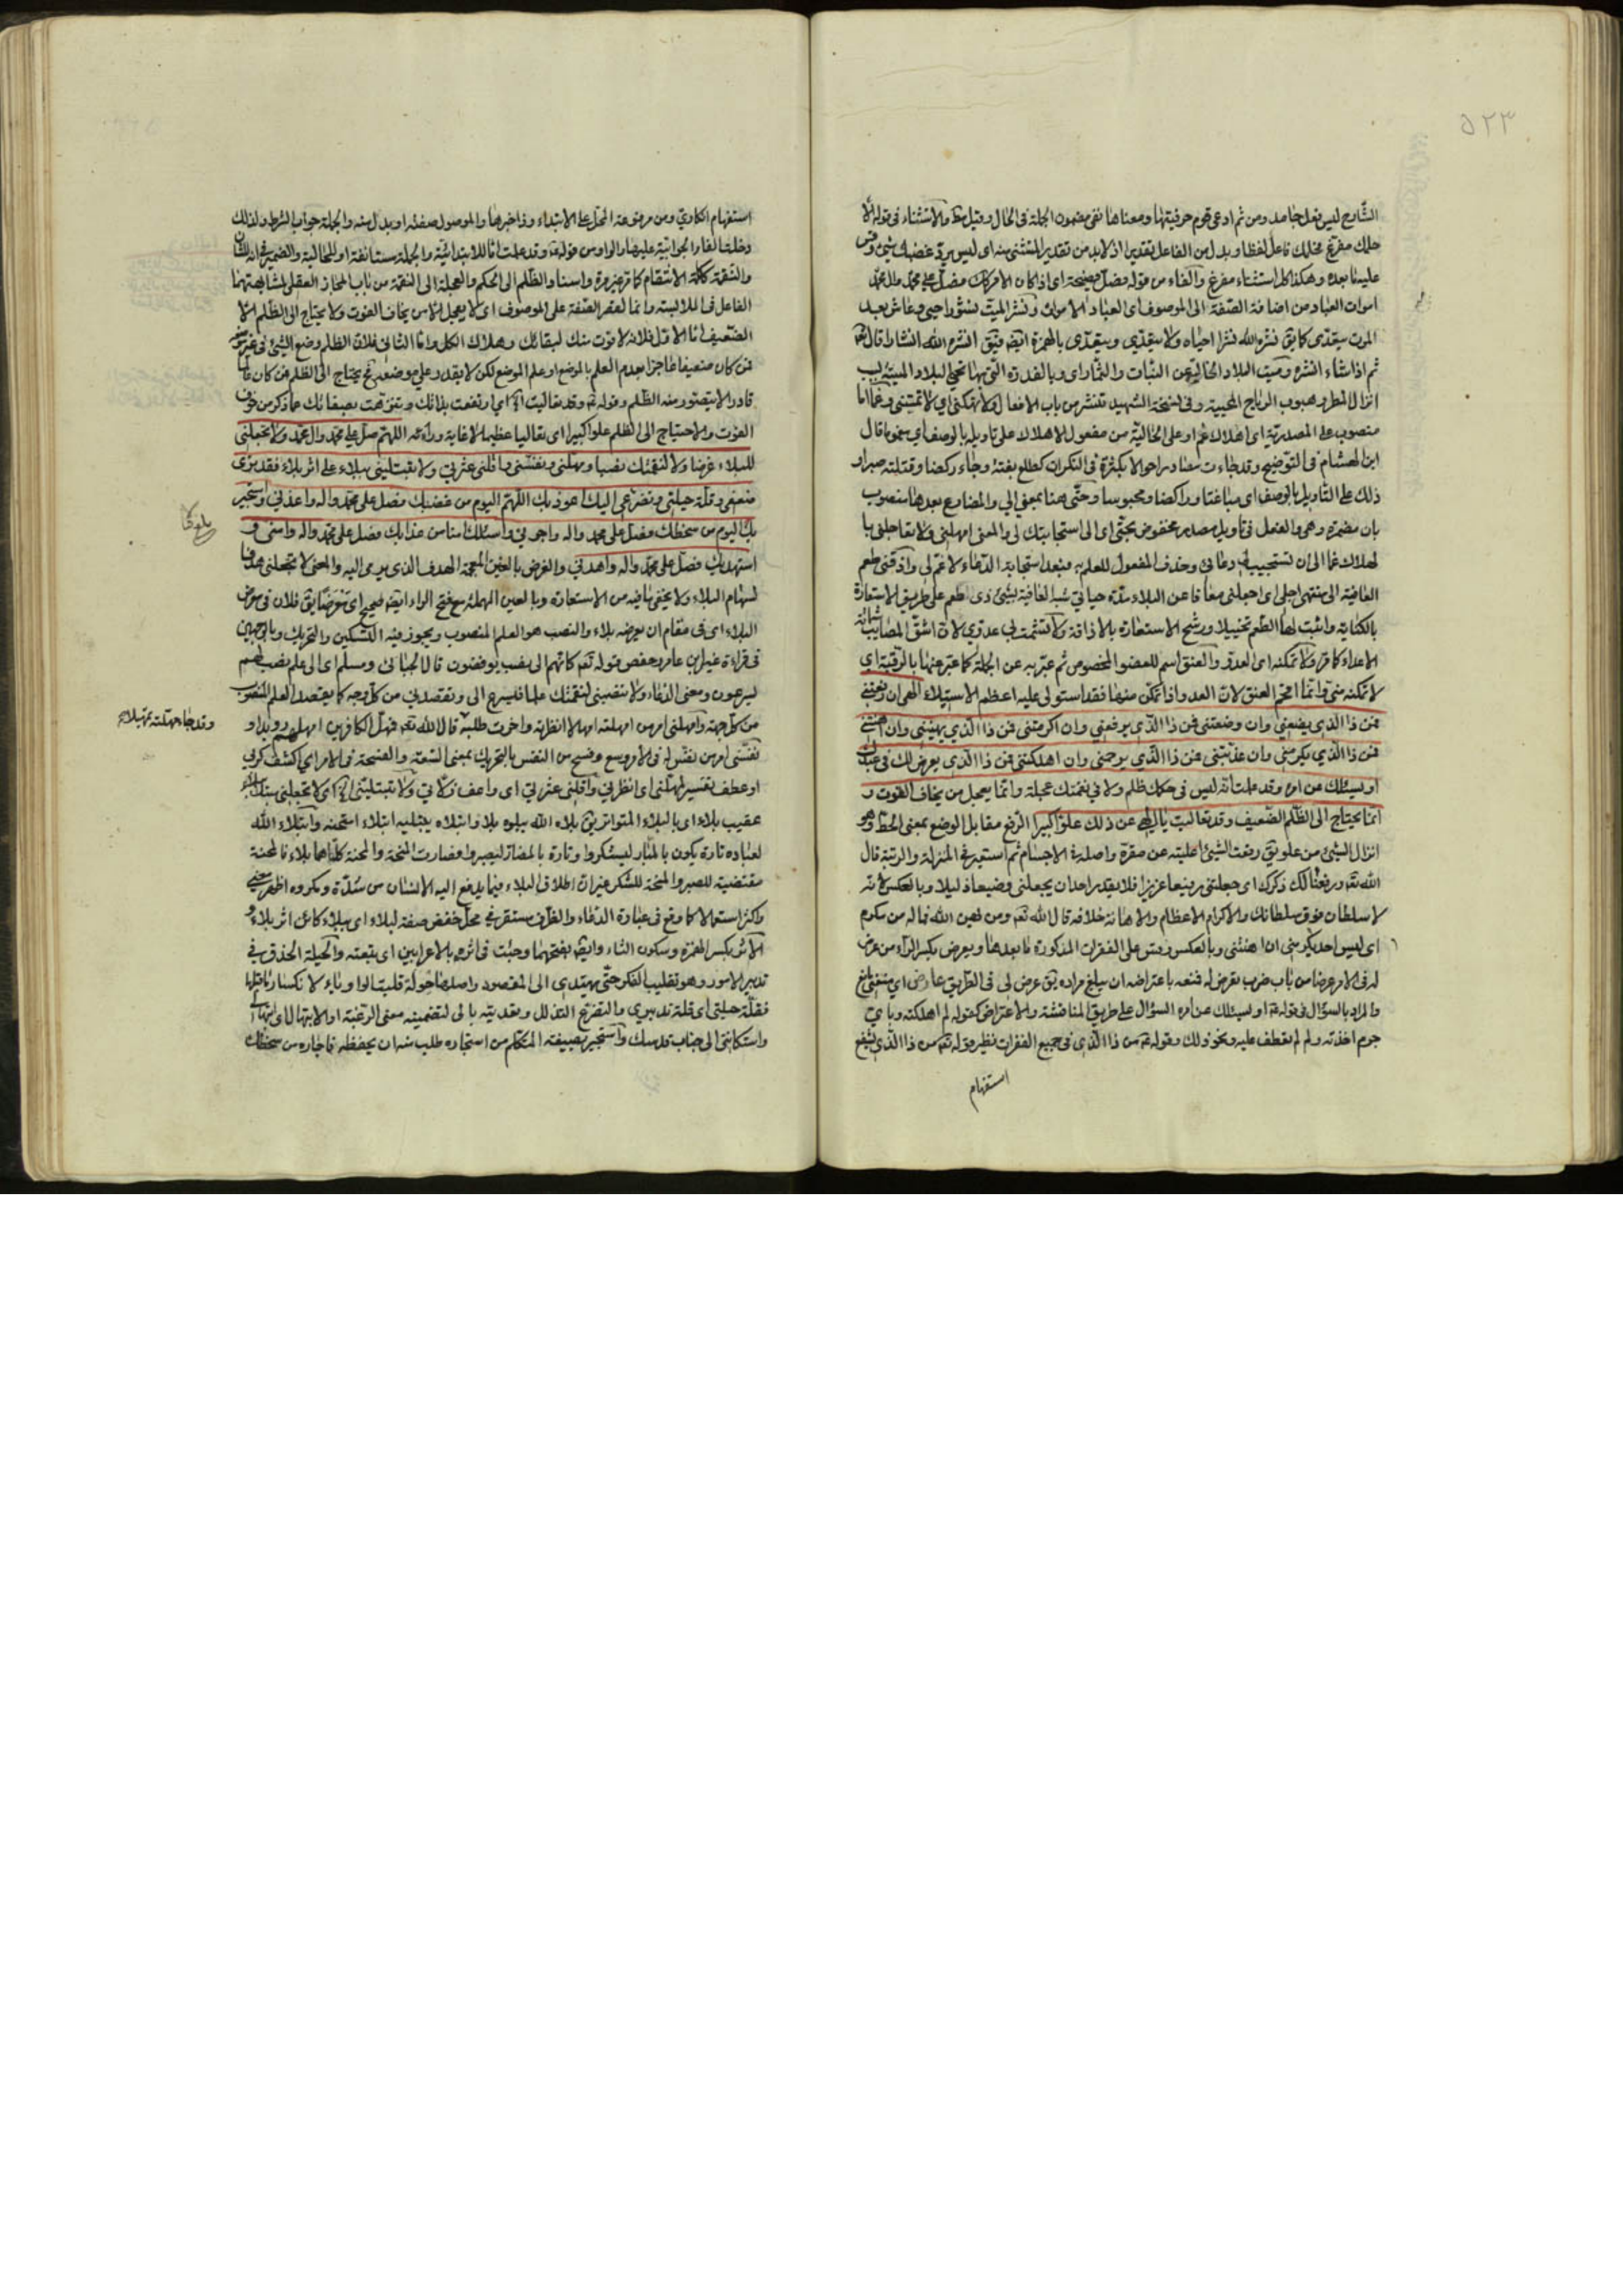 ٥٢٣
الشارح ليس بفعل جامد ومن ثم ادعى قوم حرفيتها ومعناها نفى مضمون الجملة فى الحال وقيل مط والاستثناء فى قوله الا
حلمك مفرغ فحلمك فاعل لفظا وبدل من الفاعل تقديرا اذ لابد من تقدير المستثنى منه اى ليس يرد غضبك شئ وقس
علينا بعده وهكذا كل استثناء مفرغ والفاء من قوله فصل فصيحة اى اذا كان الامر كك فصل على محمد وال محمد
اموات العباد من اضافة الصفة الى الموصوف اى العباد الاموات ونشر الميت نشورا حيى وعاش بعد
الموت يتعدى كما يق نشره الله نشرا احياه ولا يتعدى ويتعدى بالهمزة ايضا فيق انشره الله انشارا قال تع
ثم اذا شاء انشره وميت البلاد الخالية عن النبات والثمار اى وبالقدرة التى بها تحيى البلاد الميتة بسبب
انزال المطر وهبوب الرياح المحيية وفى نسخة الشهيد تنشر من باب الافعال ولا تهلكنى اى لا تمتنى وغما اما
منصوب على المصدرية اى اهلاك غم او على الحالية من مفعول الاهلاك على تاويله بالوصف اى مغموما قال
ابن هشام فى التوضيح وقد جاءت مصادر احوالا بكثرة فى النكرات كطلع بغتة وجاء ركضا وقتلته صبرا و
ذلك على التاويل بالوصف اى مباغتا وراكضا ومحبوسا وحتى هنا بمعنى الى والمضارع بعدها منصوب
بان مضمرة وهى والفعل فى تاويل مصدر مخفوض بحتى اى الى استجابتك لى والمعنى امهلنى ولا تعاجلنى با
لهلاك غما الى ان تستجيب لى دعائى وحذف المفعول للعلم به فبعد استجابة الدعاء لا غم لى واذقنى طعم
العافية الى منتهى اجلى اى اجعلنى معافا عن البلاء مدة حياتى شبه العافية بشئ ذى طعم على طريق الاستعارة
بالكناية واثبت لها الطعم تخييلا ورشح الاستعارة بالاذاقة ولا تشمت بى عدوى لان اشق المصايب شماتة
الاعداء كما قرر ولا تمكنه اى العدو والعنق اسم للعضو المخصوص ثم عبر به عن الجملة كما عبر عنها بالرقبة اى
لا تمكنه منى وانما اقحم العنق لان العدو اذا تمكن منها فقد استولى عليه اعظم الاستيلاء الهى ان رفعتنى
فمن ذا الذى يضعنى وان وضعتنى فمن ذا الذى يرفعنى وان اكرمتنى فمن ذا الذى يهيننى وان اهنتنى
فمن ذا الذى يكرمنى وان عذبتنى فمن ذا الذى يرحمنى وان اهلكتنى فمن ذا الذى يعرض لك فى عبدك
او يسئلك عن امره وقد علمت انه ليس فى حكمك ظلم ولا فى نقمتك عجلة وانما يعجل من يخاف الفوت و
انما يحتاج الى الظلم الضعيف وقد تعاليت يا الهى عن ذلك علوا كبيرا الرفع مقابل الوضع بمعنى الحط وهو
انزال الشئ من علو يق رفعت الشئ اعليته عن مقره واصله فى الاجسام ثم استعير فى المنزلة والرتبة قال
الله تع ورفعنا لك ذكرك اى جعلتنى رفيعا عزيزا فلا يقدر احد ان يجعلنى وضيعا ذليلا وبالعكس لانه
لا سلطان فوق سلطانك والاكرام الاعظام والاهانة خلافه قال الله تع ومن يهن الله فما له من مكرم
اى ليس احد يكرمنى ان اهنتنى وبالعكس وقس على الفقرات المذكورة ما بعدها ويعرض بكسر الراء من عرض
له فى الامر عرضا من باب ضرب تعرض له فمنعه باعتراضه ان يبلغ مراده يق عرض لى فى الطريق عارض اى منعنى مانع
والمراد بالسؤال فى قوله ع او يسئلك عن امره السؤال على طريق المناقشة والاعتراض كقوله لم اهلكته وباى
جرم اخذته ولم لم تعطف عليه ونحو ذلك وقوله ع من ذا الذى فى جميع الفقرات نظير قوله تع من ذا الذى يشفع
استفهام
استفهام انكارى ومن مرفوعة المحل على الابتداء وذا خبرها والموصول صفته او بدل منه والجملة جواب الشرط ولذلك
دخلت الفاء الجوابية عليها والواو من قوله ع وقد علمت اما للابتدائية والجملة مستانفة او للحالية والضمير فى انه للشان
والنقمة ككلمة الانتقام كما مر غير مرة واسناد الظلم الى الحكم والعجلة الى النقمة من باب المجاز العقلى لمشابهتهما
الفاعل فى الملابسة وانما لقصر الصفة على الموصوف اى لا يعجل الا من يخاف الفوت ولا يحتاج الى الظلم الا
الضعيف اما الاول فلانه لا فوت منك لبقائك وهلاك الكل واما الثانى فلان الظلم وضع الشئ فى غير موضعه
فمن كان ضعيفا عاجزا بعدم العلم بالموضع او علم الموضع لكن لا يقدر على موضعه فح يحتاج الى الظلم فمن كان عالما
قادرا لا يتصور منه الظلم وقوله ع وقد تعاليت اه اى ارتفعت بذاتك وتنزهت بصفاتك عما ذكر من خوف
الفوت والاحتياج الى الظلم علوا كبيرا اى تعاليا عظيما لا غاية وراءه اللهم صل على محمد وال محمد ولا تجعلنى
للبلاء غرضا ولا لنقمتك نصبا ومهلنى ونفسنى واقلنى عثرتى ولا تبتلينى ببلاء على اثر بلاء فقد ترى
ضعفى وقلة حيلتى وتضرعى اليك اعوذ بك اللهم اليوم من غضبك فصل على محمد واله واعذنى واستجير
بك اليوم من سخطك فصل على محمد واله واجرنى واسئلك امنا من عذابك فصل على محمد واله وامنى و
استهديك فصل على محمد واله واهدنى والغرض بالغين المعجمة الهدف الذى يرمى اليه والمعنى لا تجعلنى هدفا
لسهام البلاء ولا يخفى ما فيه من الاستعارة وبالعين المهملة مع فتح الراء ايضا صحيح اى معرضا يق فلان فى معرض
البلاء اى فى مقام ان يعرضه بلاء والنصب هو العلم المنصوب ويجوز فيه التسكين والتحريك وبالوجهين
فى قراءة غير ابن عامر وحفص قوله تع كانهم الى نصب يوفضون قال الجبائى ومسلم اى الى علم نصب لهم
يسرعون ومعنى الدعاء ولا تنصبنى لنقمتك علما فليسرع الى وتقصدنى من كل وجه كما يقصد العلم المنصوب
من كل جهة وامهلنى امر من امهلته امهالا انظرته واخرت طلبه قال الله تع فمهل الكافرين امهلهم رويدا و
وقد جاء مهلته تمهيلا
نفسنى امر من نفس له فى الامر وسع وفسح من النفس بالتحريك بمعنى السعة والفسحة فى الامر اى اكشف كربى
او عطف تفسير لمهلنى اى انظرنى واقلنى عثرتى اى واعف زلاتى ولا تبتلينى اه اى لا تجعلنى مبتلى ببلاء
عقيب بلاء اى بالبلاء المتواتر يق بلاه الله يبلوه بلاء وابتلاه يبتليه ابتلاء امتحنه وابتلاء الله
لعباده تارة يكون بالمسار ليشكروا وتارة بالمضار ليصبروا فصارت المنحة والمحنة كلتاهما بلاء فالمحنة
مقتضية للصبر والمنحة للشكر غير ان اطلاق البلاء فيما يدفع اليه الانسان من شدة ومكروه اظهر معنى
واكثر استعمالا كما وقع فى عبارة الدعاء والظرف مستقر فى محل خفض صفة لبلاء اى ببلاء كائن اثر بلاء و
الاثر بكسر الهمزة وسكون الثاء وايضا بفتحهما وجئت فى اثره بالاعرابين اى بتبعته والحيلة الحذق فى
تدبير الامور وهو تقليب الفكر حتى يهتدى الى المقصود واصلها حولة قلبت الواو ياء لانكسار ما قبلها
فقلة حيلتى اى قلة تدبيرى والتضرع التذلل وتعديته بالى لتضمينه معنى الرغبة او الابتهال اى ابتهالى
واستكانتى الى جناب قدسك واستجير بصيغة المتكلم من استجاره طلب منه ان يحفظه فاجاره من سخطك